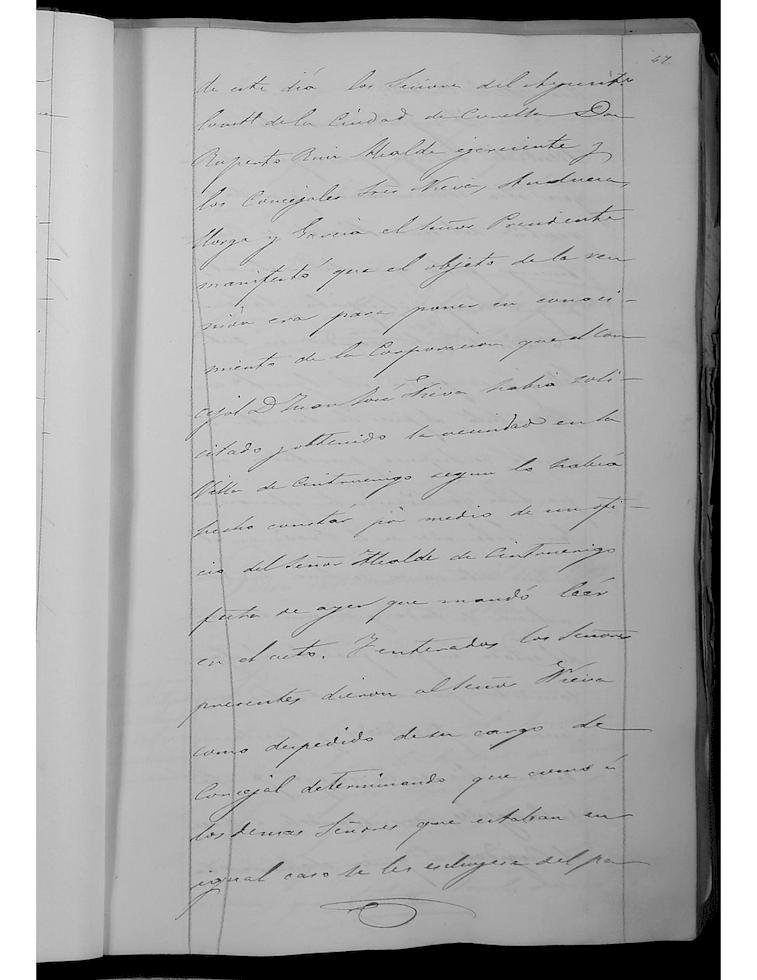 47
de este dia los Señores del Ayunto
Constl de la Ciudad de Corella Don
Ruperto Ruiz Alcalde ejerciente y
los Concejales Sres Nieva, Andueza,
Horga y Garcia el Señor Presidente
manifestó que el objeto de la reu
nión era para poner en conoci-
miento de la Corporacion que el Con
cejal D Juan José Nieva habia soli-
citado y obtenido la vecindad en la
Villa de Cintruenigo segun lo habia
hecho constar por medio de un ofi-
cio del Señor Alcalde de Cintruenigo
fecha de ayer que mandó leér
en el acto. Y enterados los Señores
presentes dieron al Señor Nieva
como despedido de su cargo de
Concejal determinando que como á
los demas Señores que estaban en
igual caso se les escluyese del pa